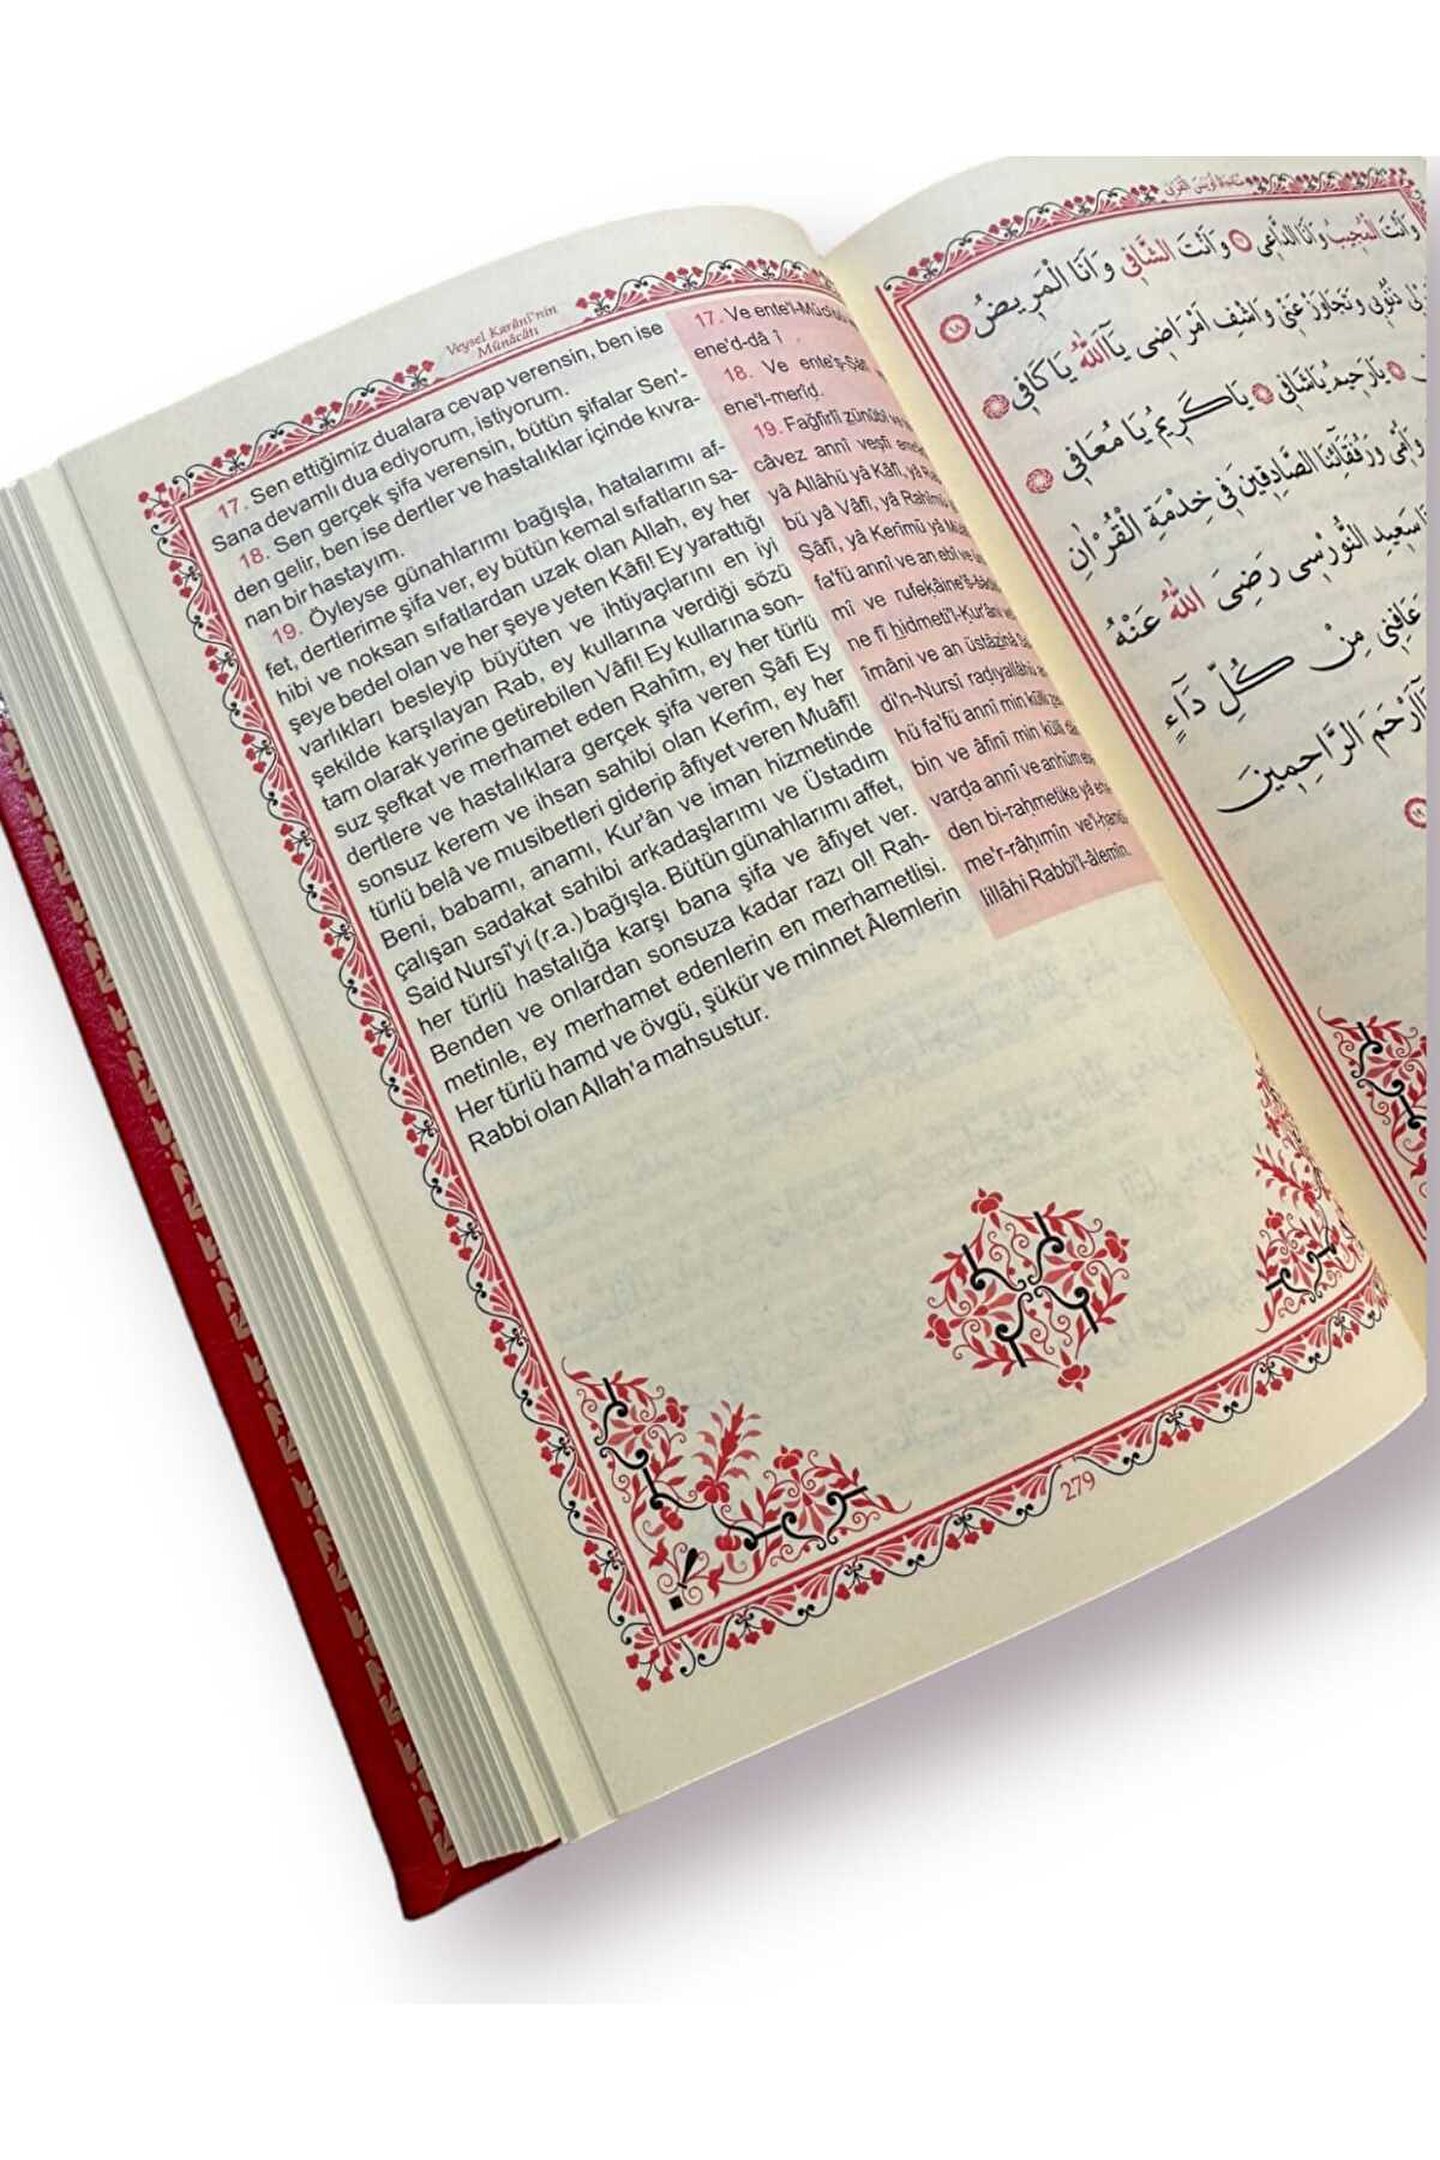 Veysel Karânî'nin
Münâcâtı
17. Sen ettiğimiz dualara cevap verensin, ben ise
Sana devamlı dua ediyorum, istiyorum.
18. Sen gerçek şifa verensin, bütün şifalar Sen'-
den gelir, ben ise dertler ve hastalıklar içinde kıvra-
nan bir hastayım.
19. Öyleyse günahlarımı bağışla, hatalarımı af-
fet, dertlerime şifa ver, ey bütün kemal sıfatların sa-
hibi ve noksan sıfatlardan uzak olan Allah, ey her
şeye bedel olan ve her şeye yeten Kâfî! Ey yarattığı
varlıkları besleyip büyüten ve ihtiyaçlarını en iyi
şekilde karşılayan Rab, ey kullarına verdiği sözü
tam olarak yerine getirebilen Vâfî! Ey kullarına son-
suz şefkat ve merhamet eden Rahîm, ey her türlü
dertlere ve hastalıklara gerçek şifa veren Şâfî Ey
sonsuz kerem ve ihsan sahibi olan Kerîm, ey her
türlü belâ ve musibetleri giderip âfiyet veren Muâfî!
Beni, babamı, anamı, Kur'ân ve iman hizmetinde
çalışan sadakat sahibi arkadaşlarımı ve Üstadım
Said Nursî'yi (r.a.) bağışla. Bütün günahlarımı affet,
her türlü hastalığa karşı bana şifa ve âfiyet ver.
Benden ve onlardan sonsuza kadar razı ol! Rah-
metinle, ey merhamet edenlerin en merhametlisi.
Her türlü hamd ve övgü, şükür ve minnet Âlemlerin
Rabbi olan Allah'a mahsustur.
17. Ve ente'l-Mücîbü
ene'd-dâ î
18. Ve ente'ş-Şâfî
ene'l-merîḍ.
19. Fağfirlî zünûbî ve
câvez annî veşfi
yâ Allâhü yâ Kâfî, yâ
bü yâ Vâfî, yâ Rahîmü
Şâfî, yâ Kerîmü yâ
fa'fü annî ve an ebî ve
mî ve rufekâine'ṣ-ṣâdıkî
ne fî ḫidmeti'l-Kur'âni
îmâni ve an üstâzinâ
di'n-Nursî radıyallâhü
hü fa'fü annî min külli
bin ve âfinî min külli
varḍa annî ve anhüm
den bi-raḥmetike yâ
me'r-râḥımîn ve'l-ḥamdü
lillâhi Rabbi'l-âlemîn.
279
مناجاة أويس القرنى
وَاَنْتَ الْمُجيبُ وَاَنَا الدَّاعى وَاَنْتَ الشَّافى وَاَنَا الْمَريضُ
ذُنُوبى وَتَجَاوَزْ عَنّى وَاشْفِ اَمْرَاضى يَا اَللّٰهُ يَا كَافى
يَارَحيمُ يَاشَافى يَاكَريمُ يَا مُعَافى
وَاُمّى وَرُفَقَائِنَا الصَّادِقينَ فى خِدْمَةِ الْقُرْاٰنِ
سَعيدِ النُّورْسى رَضِىَ اللّٰهُ عَنْهُ
عَافِنى مِنْ كُلِّ دَآءٍ
اَرْحَمَ الرَّاحِمينَ